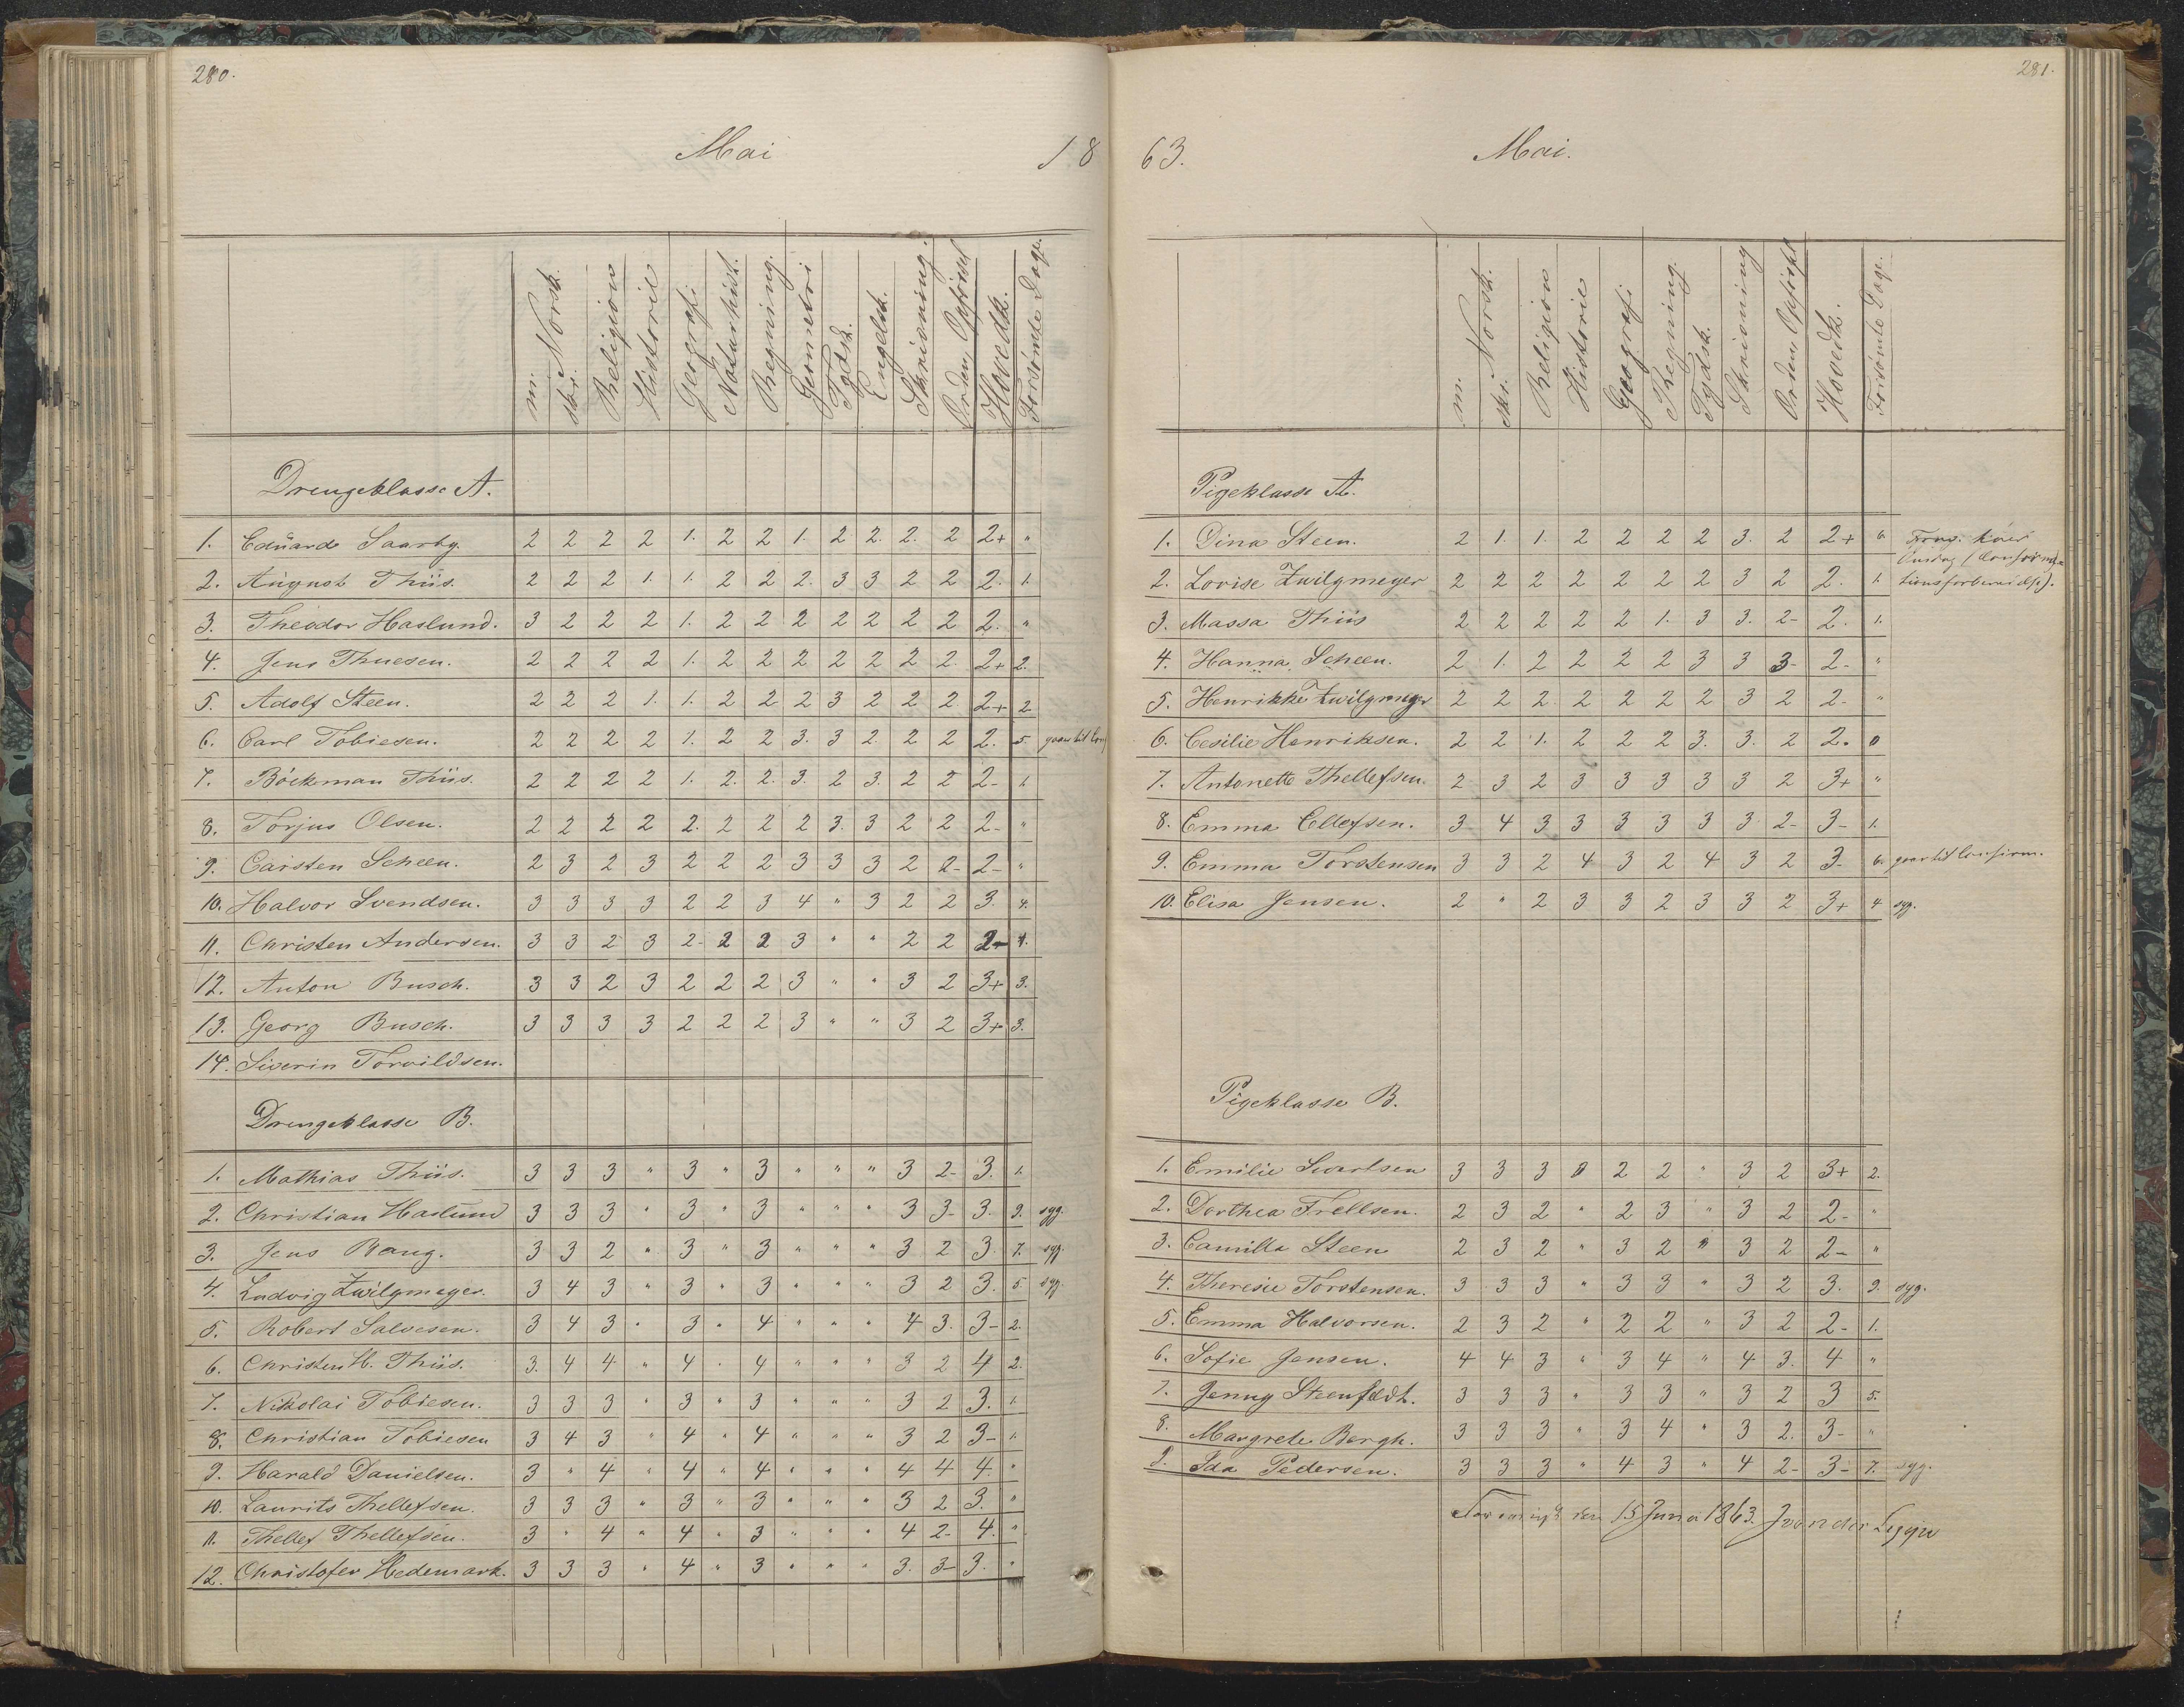 280.
Mai
18
m. skr. Norsk. Religion Historie Geografi Naturhist. Regning. Geometri Tydsk. Engelsk. Skrivning. Orden, Opførsel Hovedk. Forsømte Dage.
Drengeklasse A.
1. Eduard Saarby. 2 2 2 2 1. 2 2 1. 2 2. 2. 2 2+ "
2. August Thiis. 2 2 2 1. 1. 2 2 2. 3 3 2 2 2. 1.
3. Theodor Haslund. 3 2 2 2 1. 2 2 2 2 2 2 2 2. "
4. Jens Thuesen. 2 2 2 2 1. 2 2 2 2 2 2 2. 2+ 2.
5. Adolf Steen. 2 2 2 1. 1. 2 2 2 3 2 2 2 2+ 2
6. Carl Tobiesen. 2 2 2 2 1. 2 2 3. 3 2. 2 2 2. 5 gaar til Conf
7. Böckman Thiis. 2 2 2 2 1. 2. 2. 3. 2 3. 2 2 2- 1.
8. Torjus Olsen. 2 2 2 2 2. 2 2 2 3. 3 2 2 2- "
9. Carsten Scheen. 2 3 2 3 2 2 2 3 3 3 2 2- 2- "
10. Halvor Svendsen. 3 3 3 3 2 2 3 4 " 3 2 2 3. 4.
11. Christen Andersen. 3 3 2 3 2- 2 2 3 " " 2 2 2- 1.
12. Anton Busch. 3 3 2 3 2 2 2 3 " " 3 2 3+ 3.
13. Georg Busch. 3 3 3 3 2 2 2 3 " " 3 2 3+ 3.
14. Siverin Torvildsen.
Drengeklasse B.
1. Mathias Thiis. 3 3 3 " 3 " 3 " " " 3 2- 3. 1.
2. Christian Haslund 3 3 3 " 3 " 3 " " " 3 3- 3. 9. syg.
3. Jens Bang. 3 3 2 " 3 " 3 " " " 3 2 3. 7. syg.
4. Ludvig Zwilgmeyer. 3 4 3 " 3 " 3 " " " 3 2 3. 5 syg.
5. Robert Salvesen. 3 4 3 " 3 " 4 " " " 4 3. 3- 2.
6. Christen H. Thiis. 3. 4 4 " 4 " 4 " " " 3 2 4 2.
7. Nikolai Tobiesen. 3 3 3 " 3 " 3 " " " 3 2 3. 1.
8. Christian Tobiesen 3 4 3 " 4 " 4 " " " 3 2 3- 1.
9. Harald Danielsen. 3 " 4 " 4 " 4 " " " 4 4 4. "
10. Laurits Thellefsen. 3 3 3 " 3 " 3 " " " 3 2 3. "
11. Thellef Thellefsen. 3 " 4 " 4 " 3 " " " 4 2- 4. "
12. Christofer Hedemark. 3 3 3 " 4 " 3 " " " 3. 3- 3. "
281.
63.
Mai.
m. skr. Norsk. Religion Historie Geografi Regning. Tydsk. Skrivning Orden, Opførsel Hovedk. Forsømte Dage.
Pigeklasse A.
1. Dina Steen. 2 1. 1. 2 2 2 2 3. 2 2+ 6. hver
Onsdag (Confirma-
2. Lovise Zwilgmeyer 2 2 2 2 2 2 2 3 2 2. 1. tionsforberedelse).
3. Massa Thiis 2 2 2 2 2 1. 3 3. 2- 2. 1.
4. Hanna Scheen. 2 1. 2 2 2 2 3 3 3- 2- "
5. Henrikke Zwilgmeyer 2 2 2. 2 2 2 2 3 2 2- "
6. Cesilie Henriksen. 2 2 1. 2 2 2 3. 3. 2 2. 0
7. Antonette Thellefsen. 2 3 2 3 3 3 3 3 2 3+ "
8. Emma Ellefsen. 3 4 3 3 3 3 3 3 2- 3- 1.
9. Emma Torstensen 3 3 2 4 3 2 4 3 2 3. 6. gaar til Confirm.
10. Elisa Jensen. 2 " 2 3 3 2 3 3 2 3+ 4 syg.
Pigeklasse B.
1. Emilie Sivertsen 3 3 3 0 2 2 " 3 2 3+ 2.
2. Dorthea Frellsen. 2 3 2 " 2 3 " 3 2 2- "
3. Camilla Steen 2 3 2 " 3 2 " 3 2 2- "
4. Theresie Torstensen. 3 3 3 " 3 3 " 3 2 3. 9. syg.
5. Emma Halvorsen. 2 3 2 " 2 2 " 3 2 2- 1.
6. Sofie Jensen. 4 4 3 " 3 4 " 4 3. 4 "
7. Jenny Steenfeldt. 3 3 3 " 3 3 " 3 2 3 5.
8. Margrete Bergh. 3 3 3 " 3 4 " 3 2. 3- "
9. Ida Pedersen. 3 3 3 " 4 3 " 4 2- 3- 7. syg.
den 15 Juni 1863.